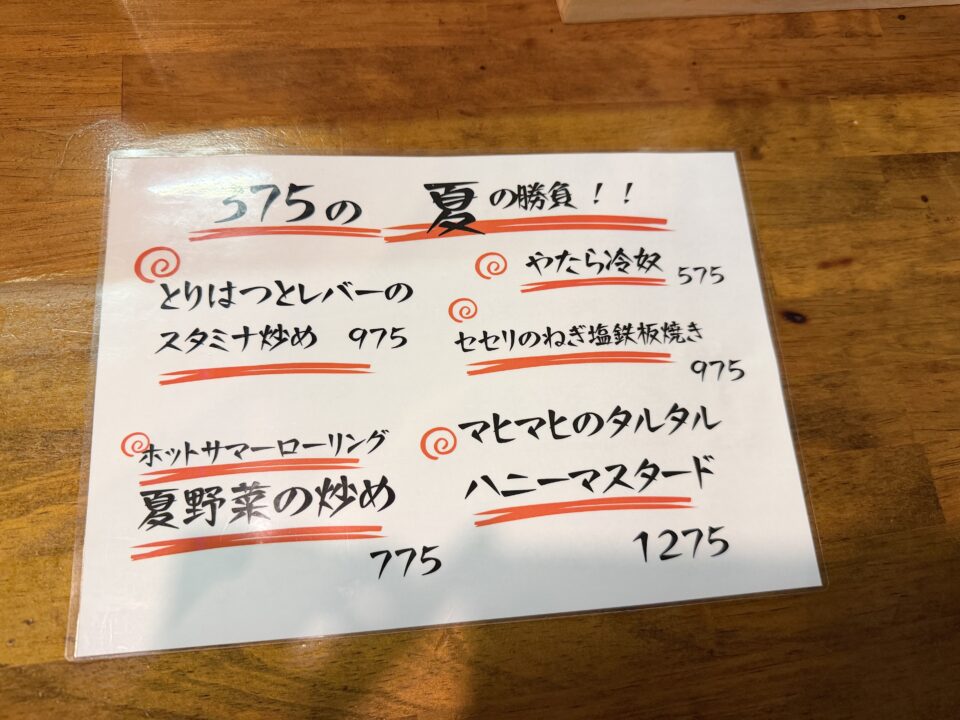 575の 夏の勝負！！
とりはつとレバーの
スタミナ炒め 975
ホットサマーローリング
夏野菜の炒め
775
やたら冷奴 575
セセリのねぎ塩鉄板焼き
975
マヒマヒのタルタル
ハニーマスタード
1275